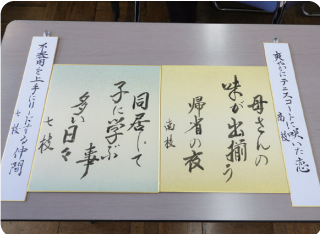 爽やかにテニスコートに咲いた恋
南枝
母さんの
味が出揃う
帰省の夜
南枝
同居して
子に学ぶ事
多い日々
七枝
不器用を上手に
仲間
七枝